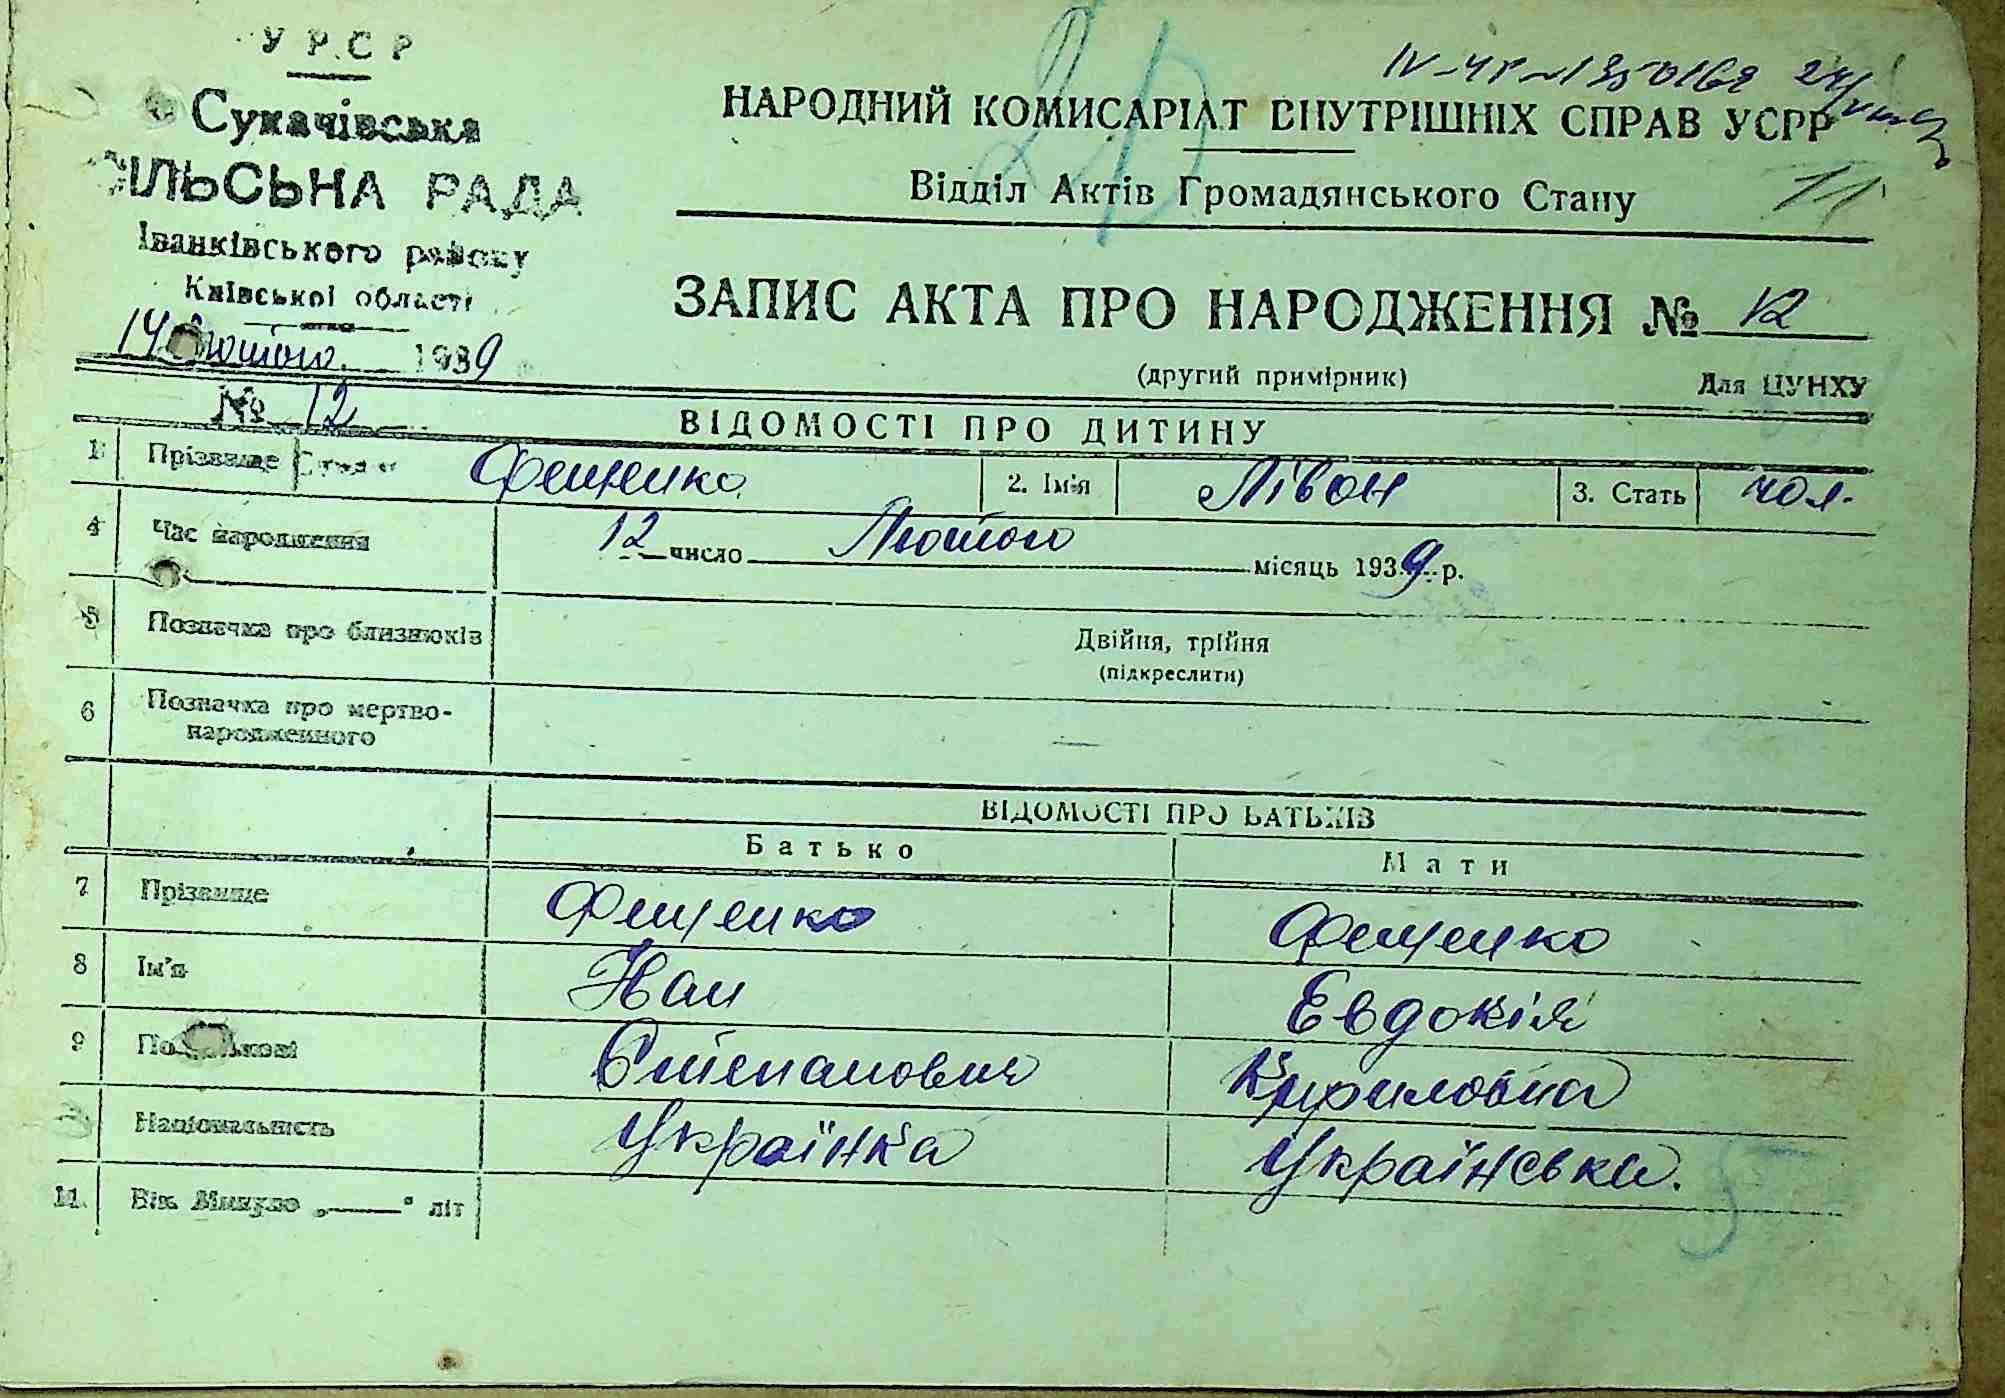 УРСР
Сукачівська
СІЛЬСЬНА РАДА
Іванківського району
Київської області
14 Лютого 1939
№ 12
НАРОДНИЙ КОМИСАРІАТ ВНУТРІШНІХ СПРАВ УСРР
Відділ Актів Громадянського Стану
11
ЗАПИС АКТА ПРО НАРОДЖЕННЯ № 12
(другий примірник)
Для ЦУНХУ
ВІДОМОСТІ ПРО ДИТИНУ
1 Прізвище Фещенко 2. Ім'я Лівон 3. Стать чол.
4 Час народження 12 число Лютого місяць 1939 р.
5 Позначка про близнюків Двійня, трійня
(підкреслити)
6 Позначка про мертво-
народженного —
ВІДОМОСТІ ПРО БАТЬКІВ
Батько Мати
7 Прізвище Фещенко Фещенко
8 Ім'я Иван Евдокія
9 По батькові Степанович Кириловна
Національність Українка Українська.
11. Вік. Минуло „——" літ